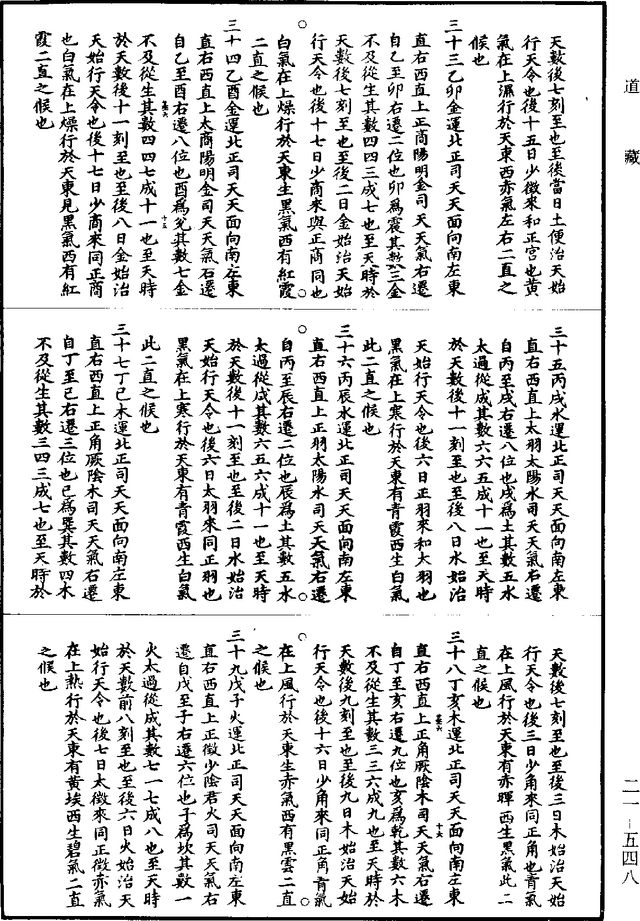 道藏
天數後七刻至也至後當日土便治天始
行天令也後十五日少徵來和正宮也黃
氣在上濕行於天東西赤氣左右二直之
候也
三十三乙卯金運北正司天天面向南左東
直右西直上正商陽明金司天天氣右遷
自乙至卯右遷二位也卯爲震其數三金
不及從生其數四四三成七也至天時於
天數後七刻至也至後二日金始治天始
行天令也後十七日少商來與正商同也
白氣在上燥行於天東生黑氣西有紅霞
二直之候也
三十四乙酉金運北正司天天面向南左東
直右西直上太商陽明金司天天氣右遷
自乙至酉右遷八位也酉爲兌其數七金
不及從生其數四四七成十一也至天時
於天數後十一刻至也至後八日金始治
天始行天令也後十七日少商來同正商
也白氣在上燥行於天東見黑氣西有紅
霞二直之候也
三十五丙戌水運北正司天天面向南左東
直右西直上太羽太陽水司天天氣右遷
自丙至戌右遷八位也戌爲土其數五水
太過從成其數六六五成十一也至天時
於天數後十一刻至也至後八日水始治
天始行天令也後六日正羽來和太羽也
黑氣在上寒行於天東有青霞西生白氣
此二直之候也
三十六丙辰水運北正司天天面向南左東
直右西直上正羽太陽水司天天氣右遷
自丙至辰右遷二位也辰爲土其數五水
太過從成其數六五六成十一也至天時
於天數後十一刻至也至後二日水始治
天始行天令也後六日太羽來同正羽也
黑氣在上寒行於天東有青霞西生白氣
此二直之候也
三十七丁巳木運北正司天天面向南左東
直右西直上正角厥陰木司天天氣右遷
自丁至巳右遷三位也巳爲巽其數四木
不及從生其數三四三成七也至天時於
天數後七刻至也至後三日木始治天始
行天令也後三日少角來同正角也青氣
在上風行於天東有赤暉西生黑氣此二
直之候也
三十八丁亥木運北正司天天面向南左東
直右西直上正角厥陰木司天天氣右遷
自丁至亥右遷九位也亥爲乾其數六木
不及從生其數三三六成九也至天時於
天數後九刻至也至後九日木始治天始
行天令也後十六日少角來同正角青氣
在上風行於天東生赤氣西有黑雲二直
之候也
三十九戊子火運北正司天天面向南左東
直右西直上正徵少陰君火司天天氣右
遷自戊至子右遷六位也子爲坎其數一
火太過從成其數七一七成八也至天時
於天數前八刻至也至後六日火始治天
始行天令也後七日太徵來同正徵赤氣
在上熱行於天東有黃埃西生碧氣二直
之候也
二一-五四八